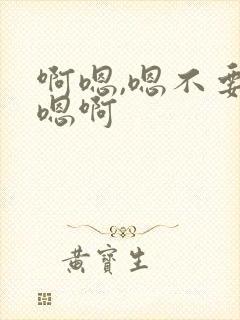 啊嗯,嗯不要
嗯啊
黄宝生